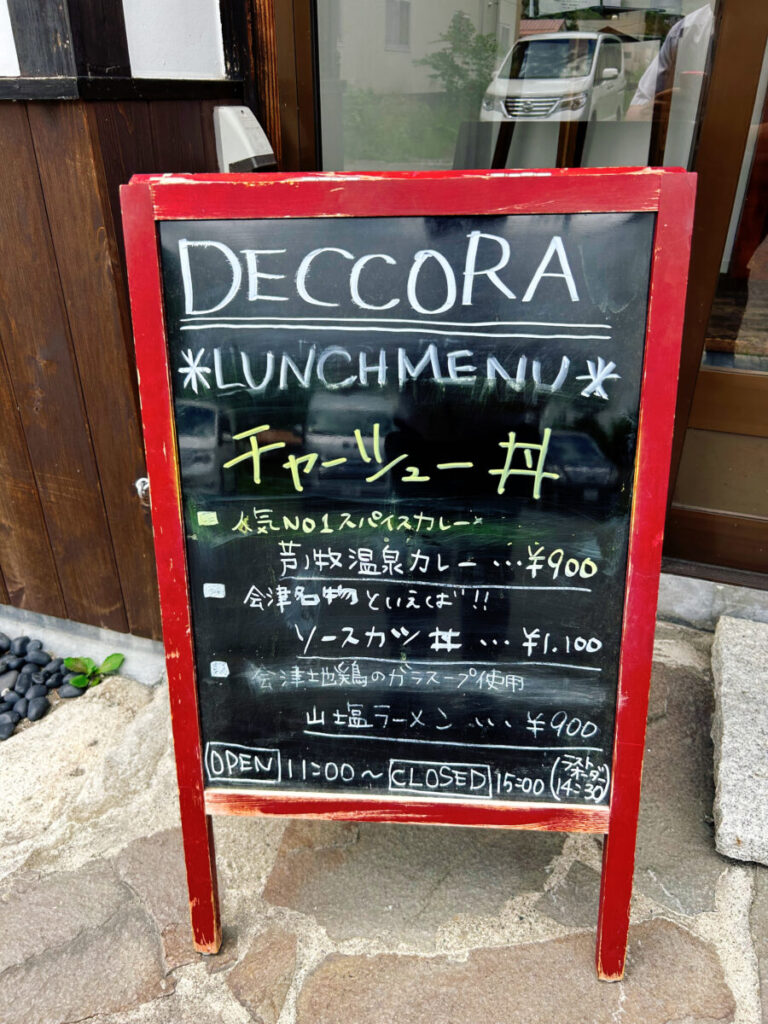 DECCORA
*LUNCH MENU*
チャーシュー丼
人気NO1スパイスカレー
芦ノ牧温泉カレー…¥900
会津名物といえば!!
ソースカツ丼…¥1.100
会津地鶏のガラスープ使用
山塩ラーメン…¥900
OPEN 11:00～CLOSED 15:00(ラストオーダー14:30)